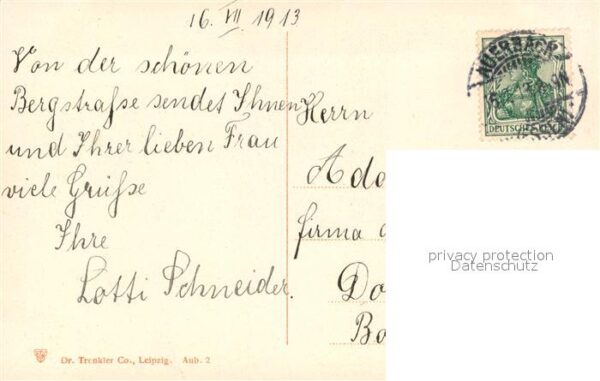 16. VII 1913
Von der schönen
Bergstraße sendet Ihnen
und Ihrer lieben Frau
viele Grüße
Ihre
Lotti Schneider.
Herrn
Ado
firma
Do
Ba
AUERBACH
DEUTSCHES
privacy protection
Datenschutz
Dr. Trenkler Co., Leipzig. Aub. 2